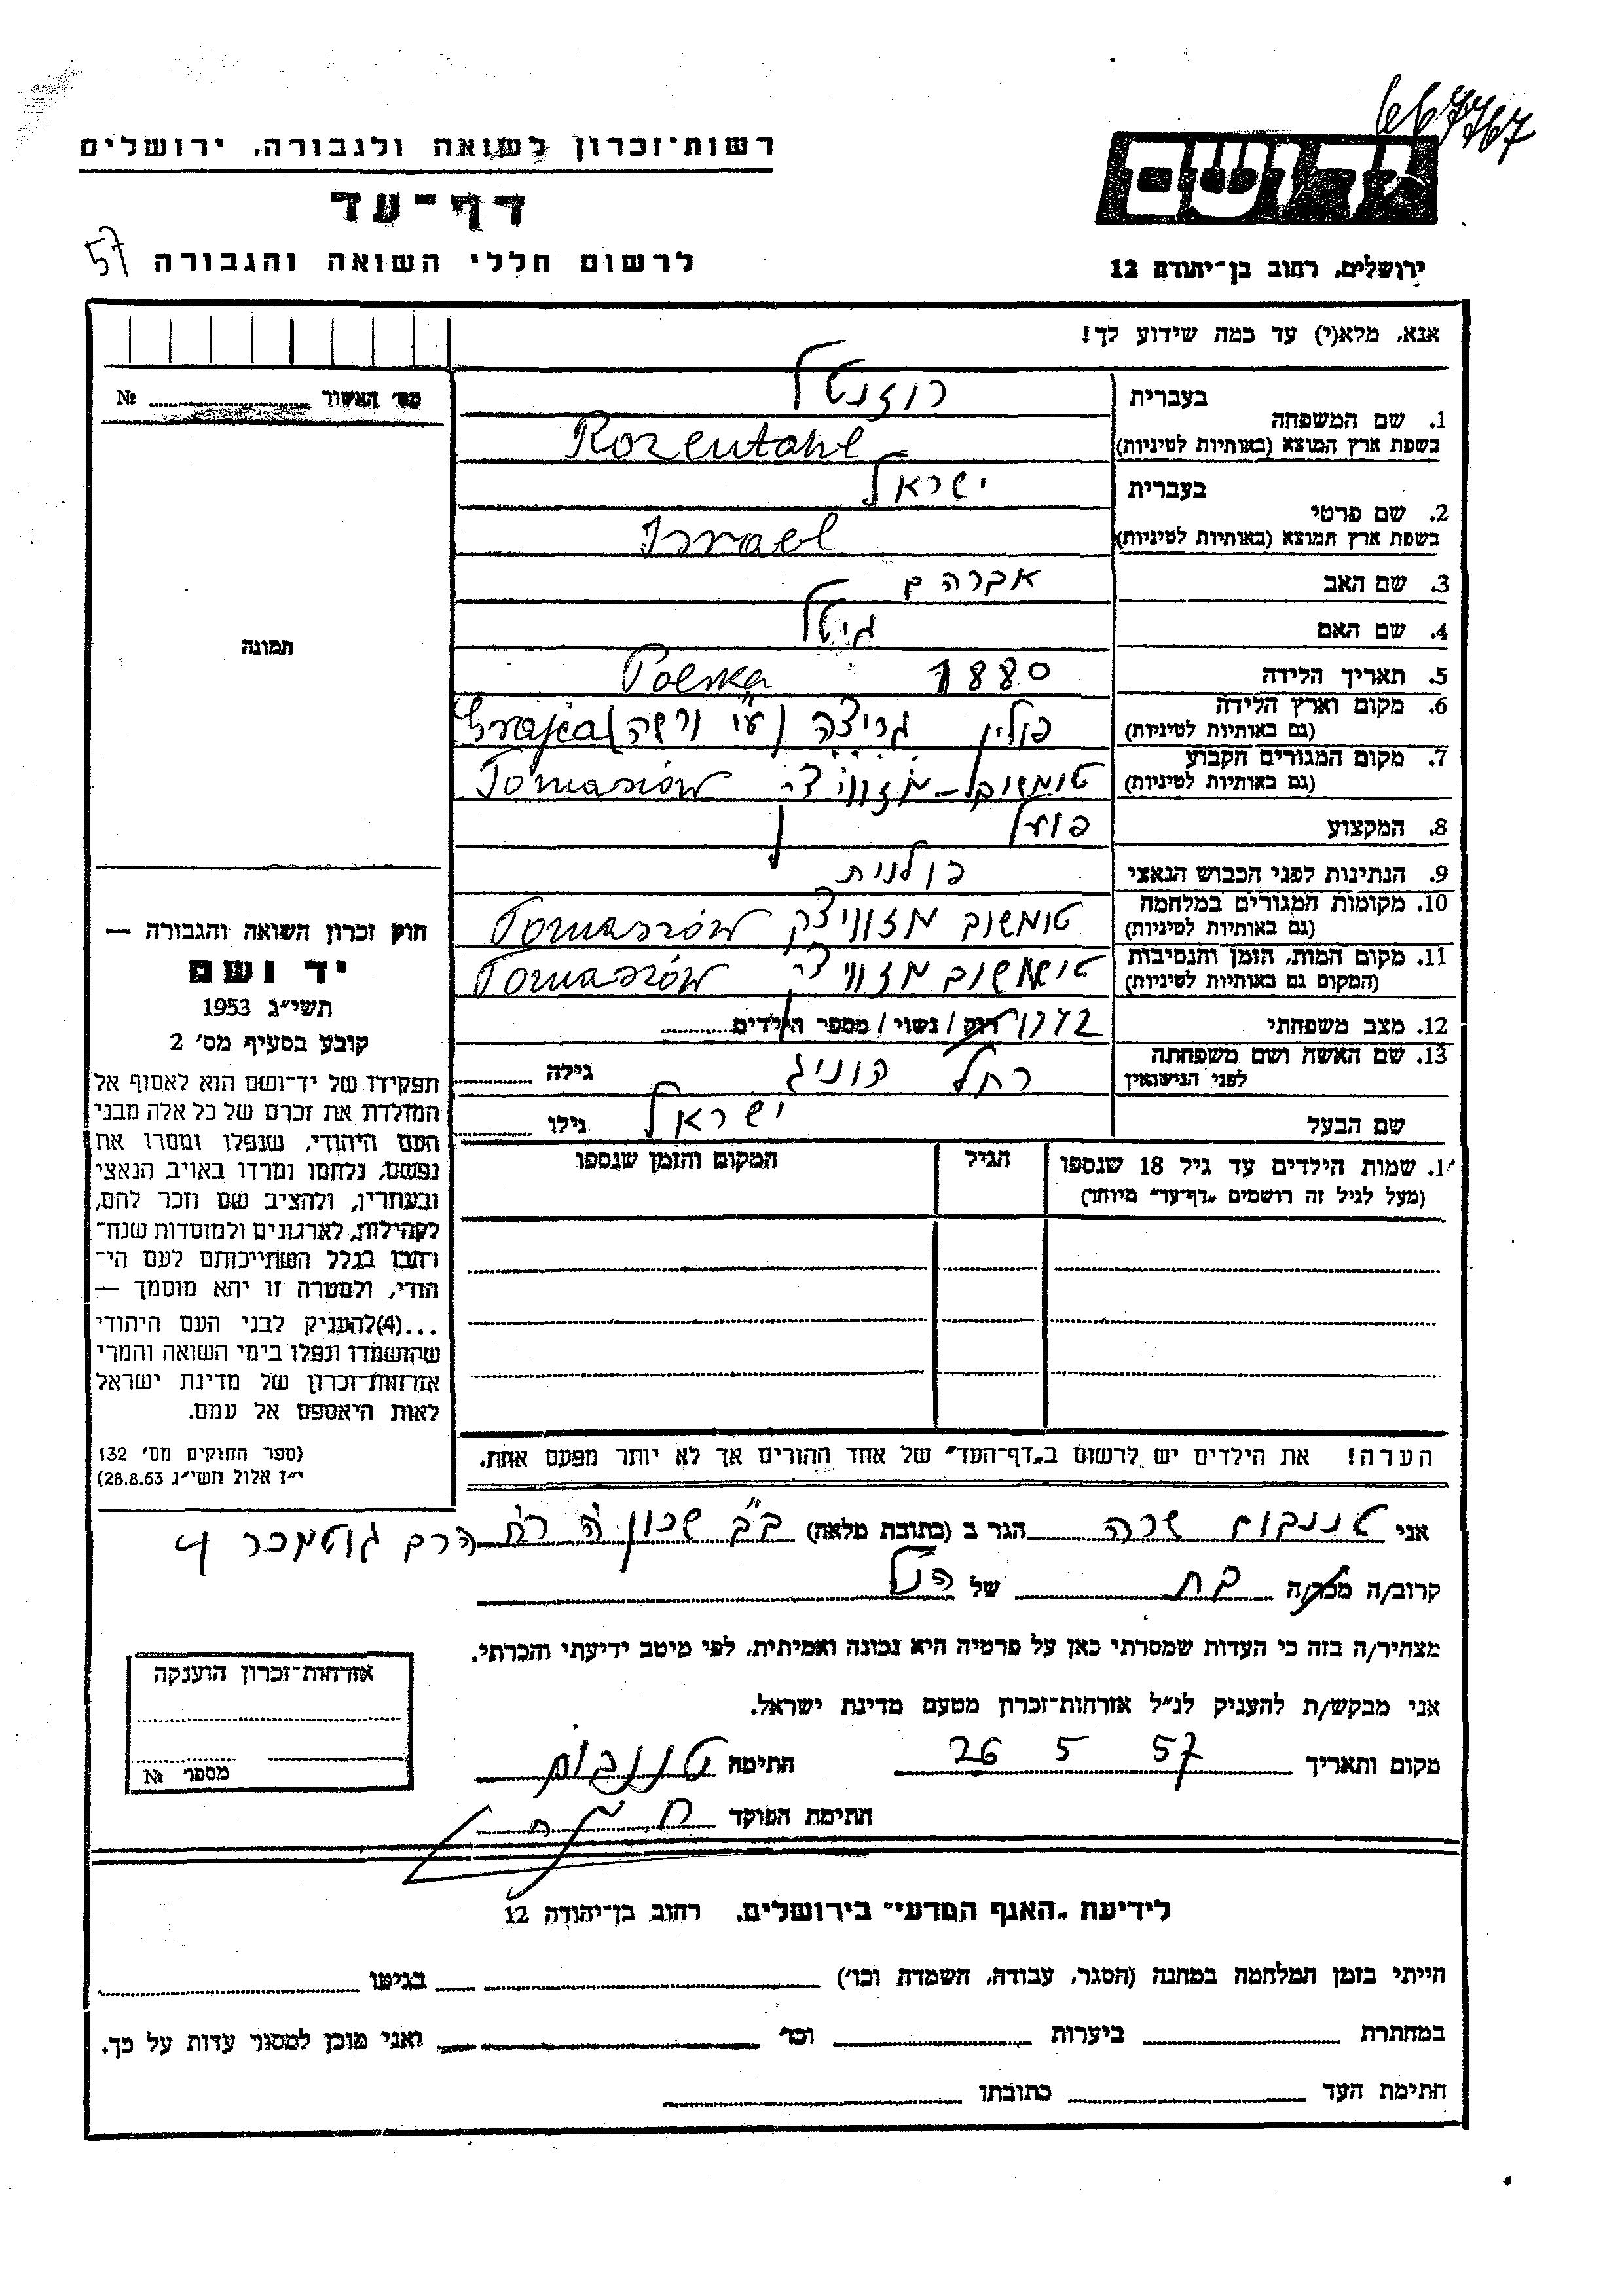 667767
יד ושם
רשות־זכרון לשואה ולגבורה, ירושלים
דף־עד
לרשום חללי השואה והגבורה
57
ירושלים, רחוב בן־יהודה 12
אנא, מלא(י) עד כמה שידוע לך!
מס׳ האשור № 
בעברית רוזנטל
1. שם המשפחה
בשפת ארץ המוצא (באותיות לטיניות) Rozentahl
בעברית ישראל
2. שם פרטי
בשפת ארץ המוצא (באותיות לטיניות) Israel
3. שם האב אברהם
4. שם האם גיטל
5. תאריך הלידה 1880 Polska
6. מקום וארץ הלידה
(גם באותיות לטיניות) פולין גריצה (ע״י ורשה)
7. מקום המגורים הקבוע
(גם באותיות לטיניות) טומשוב־מזוויצקי Tomaszów
8. המקצוע פועל
9. הנתינות לפני הכבוש הנאצי פולנית
10. מקומות המגורים במלחמה
(גם באותיות לטיניות) טומשוב מזוויצק Tomaszów
11. מקום המות, הזמן והנסיבות
(המקום גם באותיות לטיניות) טומשוב מזוויצקי Tomaszów
12. מצב משפחתי רווק / נשוי / מספר הילדים
13. שם האשה ושם משפחתה
לפני הנישואין רחל קוניג גילה
שם הבעל ישראל גילו
תמונה
חוק זכרון השואה והגבורה —
יד ושם
תשי״ג 1953
קובע בסעיף מס׳ 2
תפקידו של יד־ושם הוא לאסוף אל
המולדת את זכרם של כל אלה מבני
העם היהודי, שנפלו ומסרו את
נפשם, נלחמו ומרדו באויב הנאצי
ובעוזריו, ולהציב שם וזכר להם,
לקהילות, לארגונים ולמוסדות שנח־
רבו בגלל השתייכותם לעם הי־
הודי, ולמטרה זו יהא מוסמך —
...(4)להעניק לבני העם היהודי
שהושמדו ונפלו בימי השואה והמרי
אזרחות־זכרון של מדינת ישראל
לאות היאספם אל עמם.
(ספר החוקים מס׳ 132
י״ז אלול תשי״ג 28.8.53)
14. שמות הילדים עד גיל 18 שנספו הגיל המקום והזמן שנספו
(מעל לגיל זה רושמים „דף־עד״ מיוחד)
הערה! את הילדים יש לרשום ב„דף־העד״ של אחד ההורים אך לא יותר מפעם אחת.
אני טננבוים שרה הגר ב (כתובת מלאה) ב״ב שכון ה׳ רח׳ הרב גוטמכר 4
קרוב/ה מכר/ה בת של הנ״ל
מצהיר/ה בזה כי העדות שמסרתי כאן על פרטיה היא נכונה ואמיתית, לפי מיטב ידיעתי והכרתי.
אני מבקש/ת להעניק לנ״ל אזרחות־זכרון מטעם מדינת ישראל.
מקום ותאריך 26 5 57 חתימה
חתימת הפוקד
אזרחות־זכרון הוענקה
מספר №
לידיעת „האגף המדעי״ בירושלים, רחוב בן־יהודה 12
הייתי בזמן המלחמה במחנה (הסגר, עבודה, השמדה וכו׳) בגיטו
במחתרת ביערות וכו׳ ואני מוכן למסור עדות על כך.
חתימת העד כתובתו